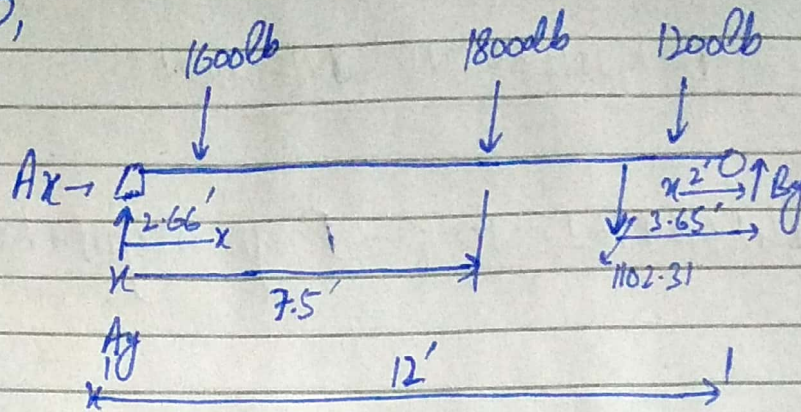 ),
1600lb 1800lb 1200lb
Ax→ 2' By
2.66' 3.65'
7.5' 1102.31
Ay
12'